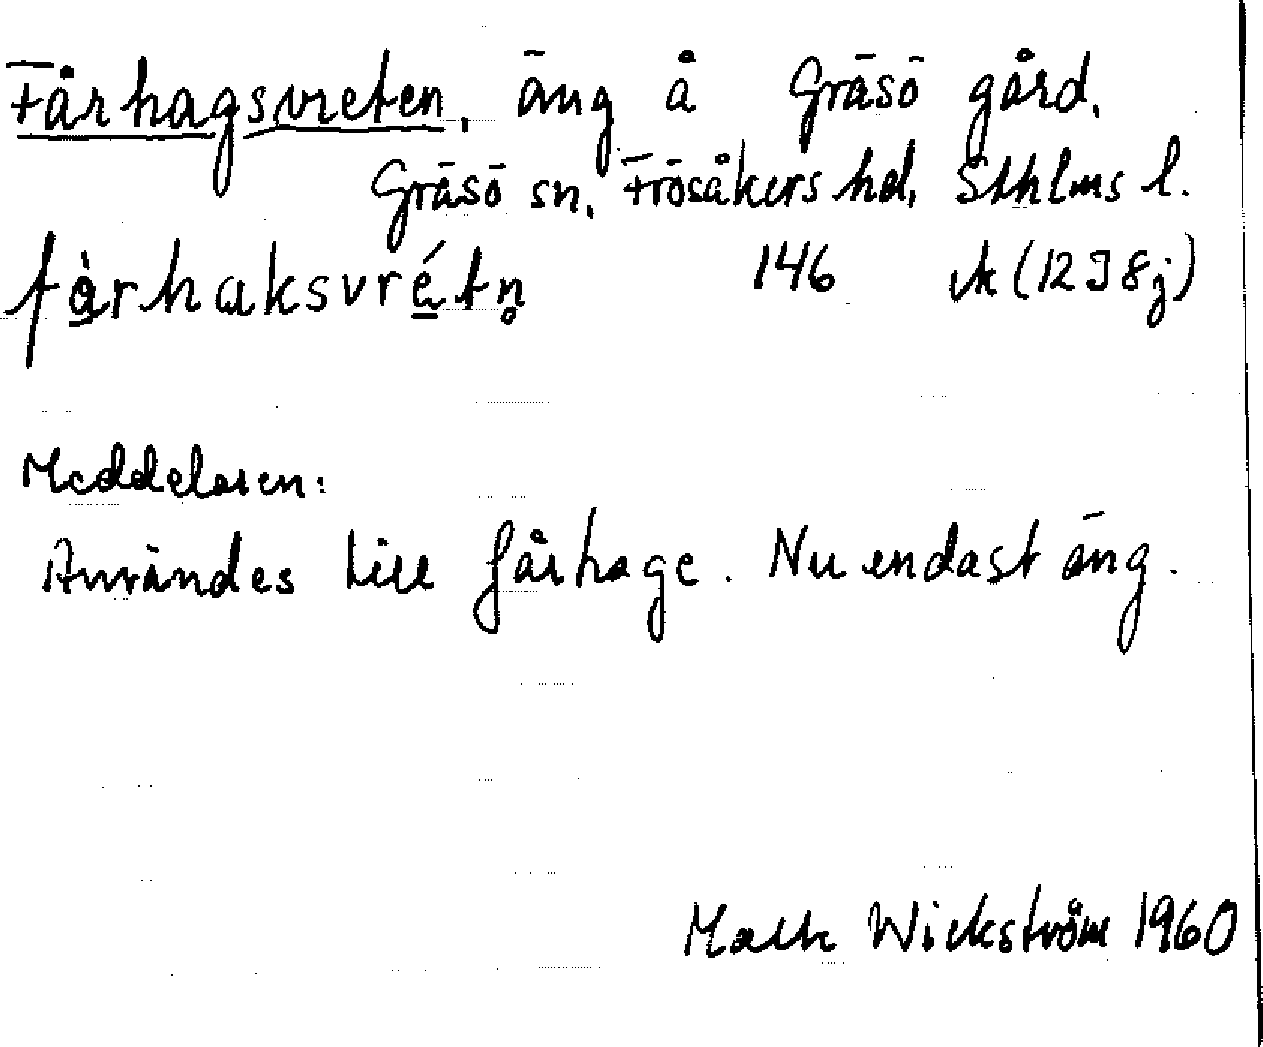 Fårhagsvreten, äng å Gräsö gård,
Gräsö sn, Frösåkers hd, Sthlms l.
få̀rhaksvrétn̥ 146 ek (12 I 8 j)
Meddelaren:
Användes till fårhage. Nu endast äng.
Wickström 1960